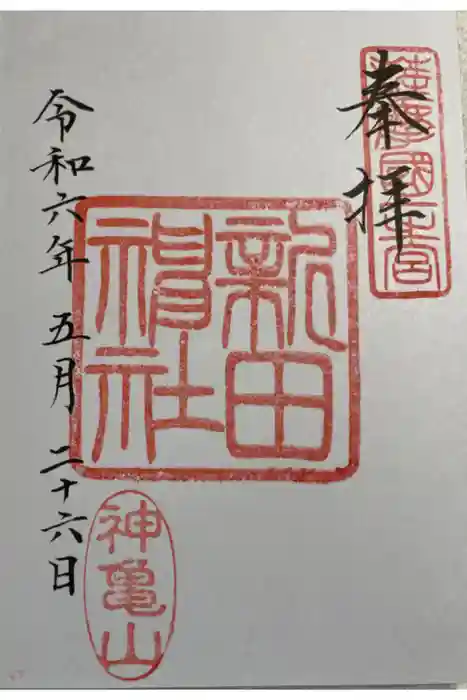 薩摩國一之宮
奉拝
新田
神社
令和六年五月二十六日
神亀山